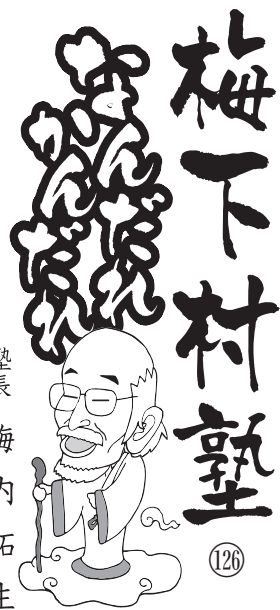 梅下村塾
126
なんだれ
かんだれ
塾長 梅内拓生